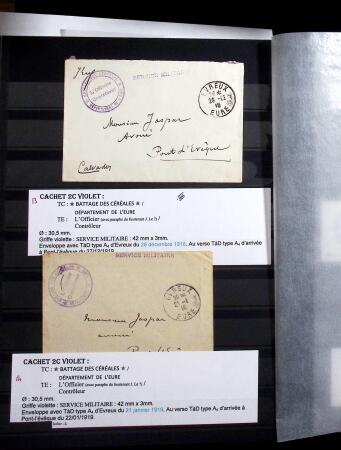 SERVICE MILITAIRE
L'Officier
Contrôleur
EVREUX
28 -12
18
EURE
Monsieur Jaspar
Avoué
Pont d'Evêque
Calvados
CACHET 2C VIOLET :
TC : ✶ BATTAGE DES CÉRÉALES ✶ /
DÉPARTEMENT DE L'EURE
TE : L'Officier (avec paraphe du lieutenant J. Le ?) /
Contrôleur
Ø : 30,5 mm.
Griffe violette : SERVICE MILITAIRE : 42 mm x 3mm.
Enveloppe avec TàD type A₄ d'Evreux du 28 décembre 1918. Au verso TàD type A₄ d'arrivée
à Pont-l'évêque du 22/12/1919.
SERVICE MILITAIRE
EVREUX
EURE
Monsieur Jaspar
avoué
CACHET 2C VIOLET :
TC : ✶ BATTAGE DES CÉRÉALES ✶ /
DÉPARTEMENT DE L'EURE
TE : L'Officier (avec paraphe du lieutenant J. Le ?) /
Contrôleur
Ø : 30,5 mm.
Griffe violette : SERVICE MILITAIRE : 42 mm x 3mm.
Enveloppe avec TàD type A₄ d'Evreux du 21 janvier 1919. Au verso TàD type A₄ d'arrivée à
Pont-l'évêque du 22/01/1919.